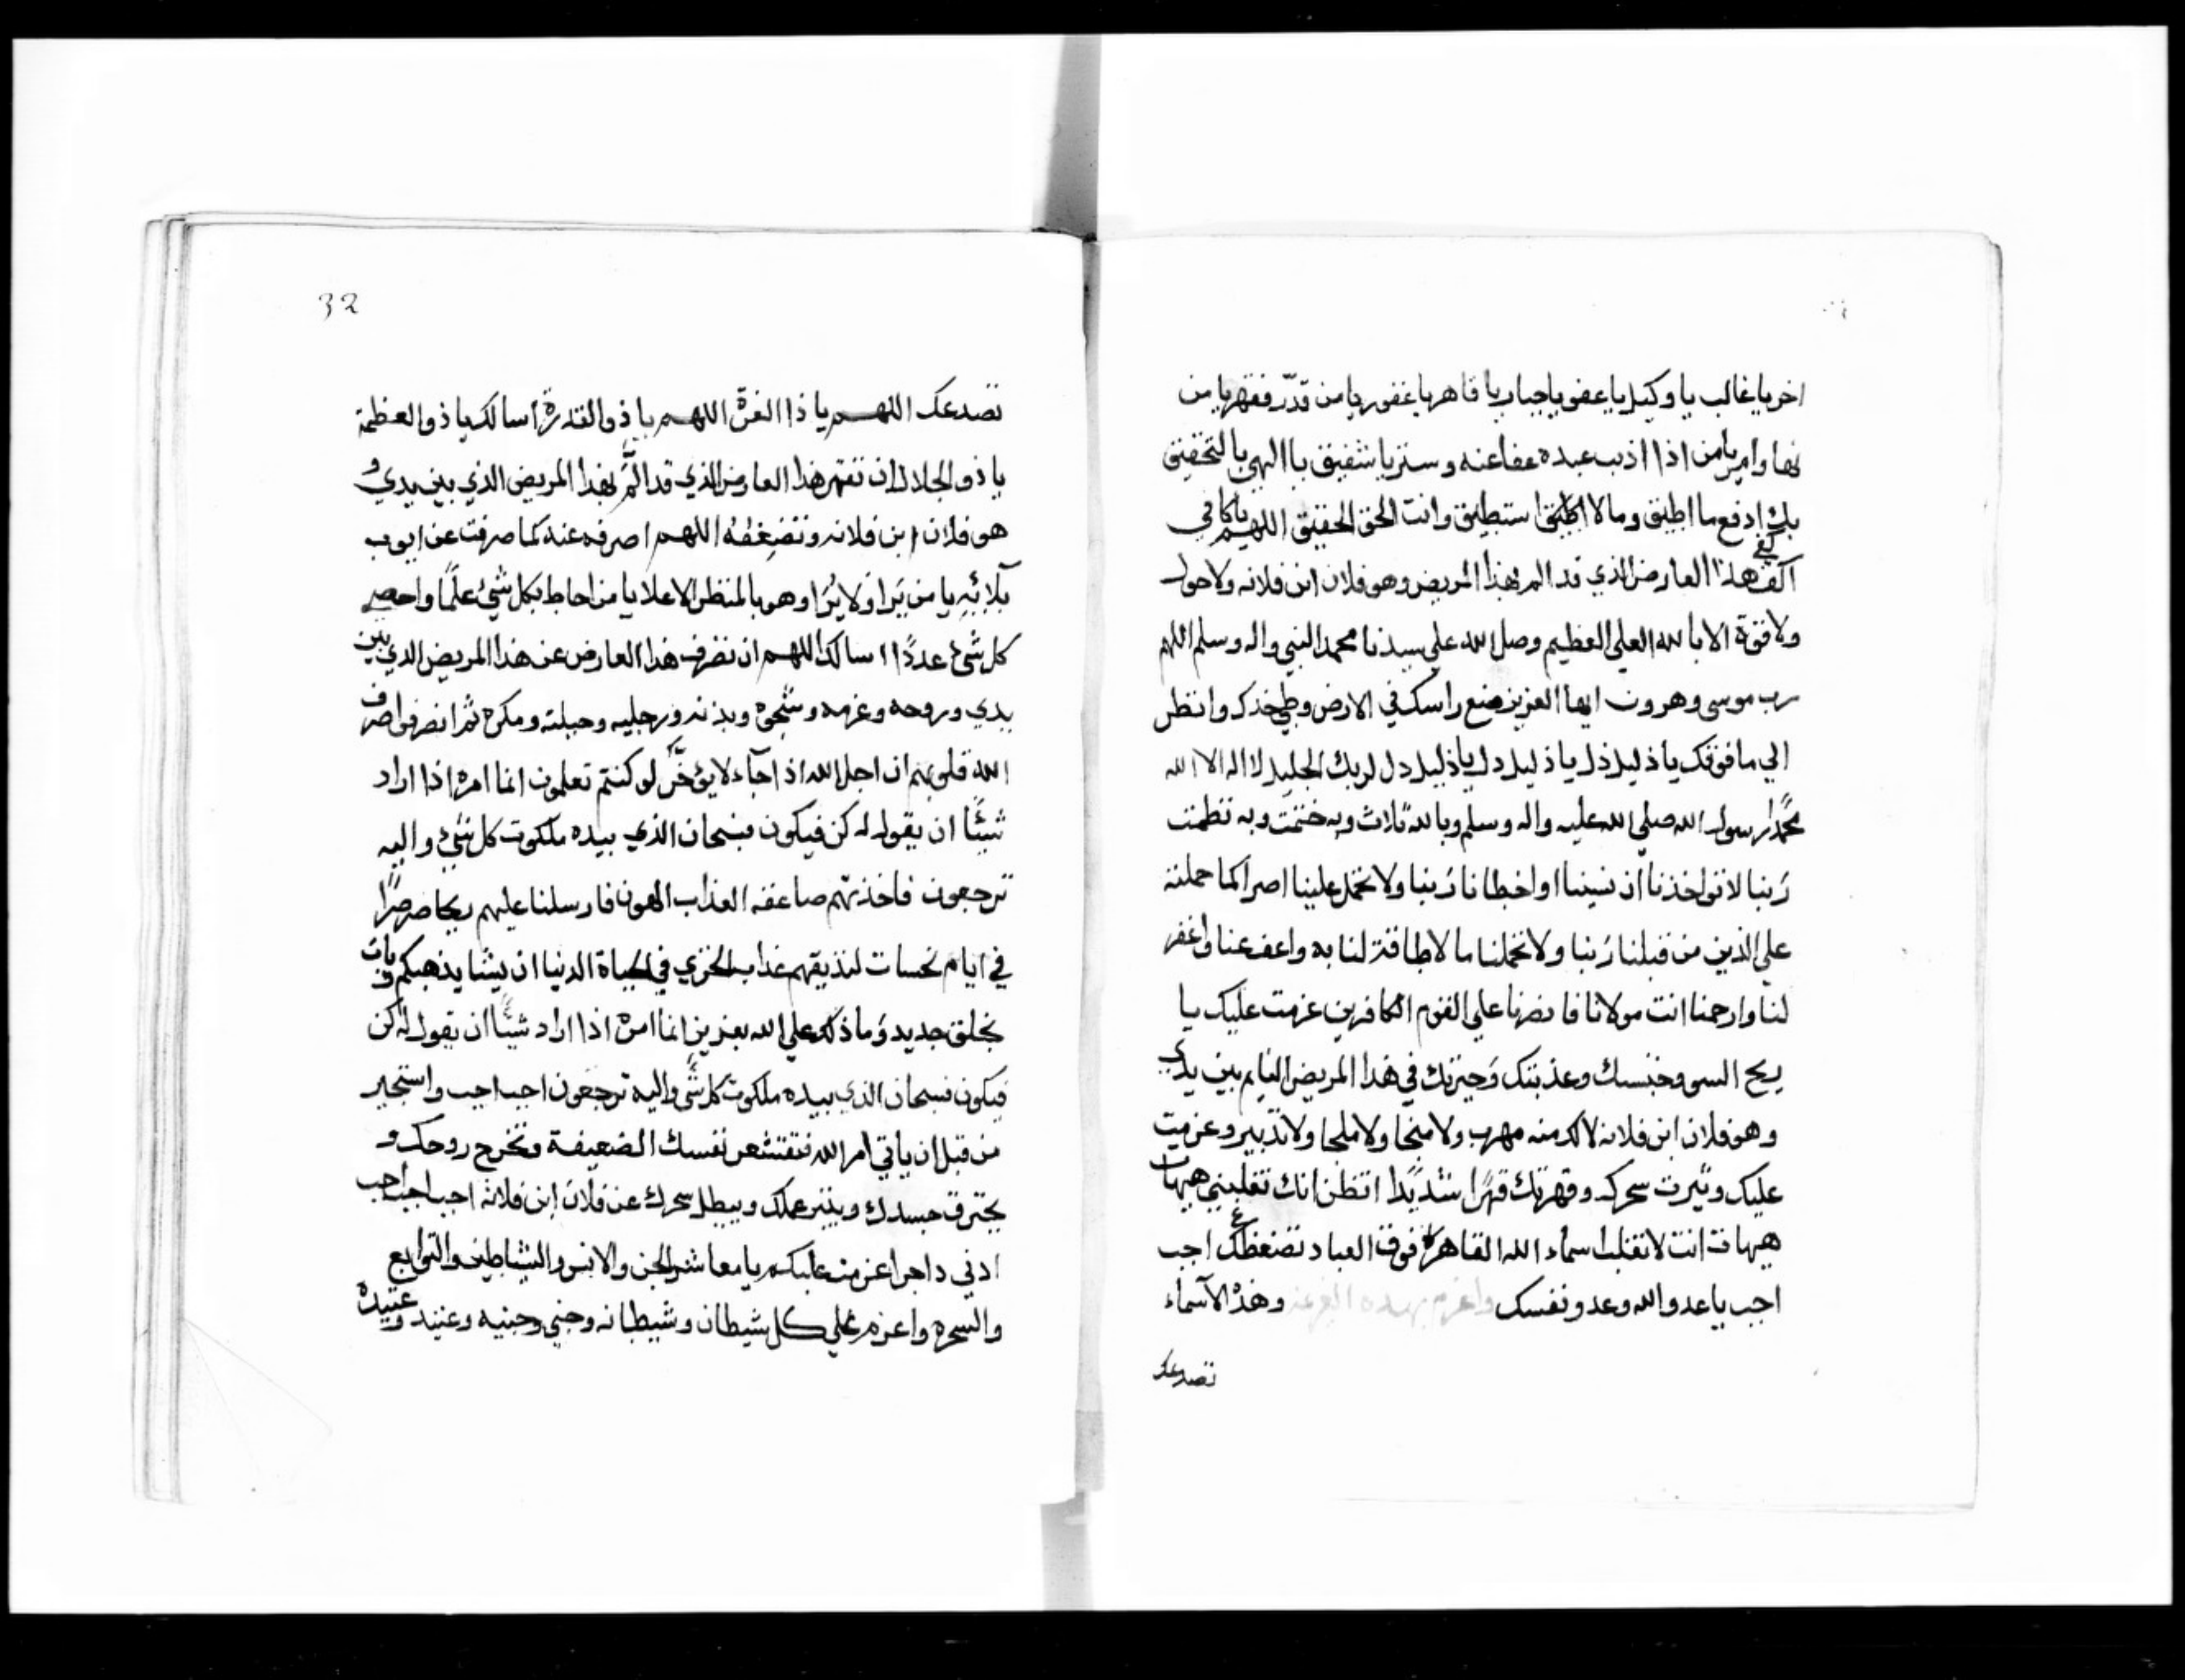 اخر يا غالب يا وكيل يا عفو يا جبار يا قاهر يا غفور يا من قدّر فقهر يا من
نها وامر يا من اذا اذنب عبده عفا عنه وستر يا شفيق يا الهي بالتحقيق
بك ادفع ما اطيق وما لا اطيق استطيق وانت الحق الحقيق اللهم يا كافي
اكفي هذا العارض الذي قد الم بهذا المريض وهو فلان ابن فلانه ولا حول
ولا قوة الا بالله العلي العظيم وصل الله علي سيدنا محمد النبي واله وسلم اللهم
رب موسى وهرون ايها العزيز ضع راسك في الارض وطي خدك وانظر
الي ما فوقك يا ذليل ذل يا ذليل دل يا ذليل دل لربك الجليل لا اله الا الله
محمدًا رسول الله صلي الله عليه واله وسلم وبالله ثلاث وبه ختمت وبه نظمت
رَبنا لا تواخذنا ان نسينا او اخطانا رَبنا ولا تحمل علينا اصرا كما حملته
علي الذين من قبلنا رَبنا ولا تحملنا ما لا طاقة لنا به واعف عنا واغفر
لنا وارحمنا انت مولانا فانصرنا علي القوم الكافرين عزمت عليك يا
ريح السو وحبستك وعذبتك وَحيرتك في هذا المريض النايم بين يدي
وهو فلان ابن فلانه لا لك منه مهرب ولا منجا ولا ملجا ولا تدبير وعزمت
عليك وتبرت سحرك وقهرتك قهرًا شديدًا اتظن انك تغلبني هيهات
هيهات انت لا تغلب اسماء الله القاهرة فوق العباد تضغطك اجب
اجب يا عدو الله وعدو نفسك واعزم بهذه العزيمة وهذه الآسماء
تصدعك
32
تصدعك اللهم يا ذا العزة اللهم يا ذو القدرة اسالك يا ذو العظمة
يا ذو الجلال ان تقهر هذا العارض الذي قد المّ بهذا المريض الذي بين يدي و
هو فلان ابن فلانه وتضغطه اللهم اصرفه عنه كما صرفت عن ايوب
بلائه يا من يَرا ولا يُرا وهو بالمنظر الاعلا يا من احاط بكل شيء علمًا واحصي
كل شيء عددًا اسالك اللهم ان تصرف هذا العارض عن هذا المريض الذي بين
يدي وروحه وعزمه وشجوه وبدنه ورجليه وحيلته ومكره ثم انصرفوا صرف
الله قلوبهم ان اجل الله اذا جآء لا يؤخَّر لو كنتم تعلمون انما امره اذا اراد
شيئًا ان يقول له كن فيكون فسبحان الذي بيده ملكوت كل شيء واليه
ترجعون فاخذتهم صاعقه العذاب الهون فارسلنا عليهم ريحا صرصرًا
في ايام نحسات لنذيقهم عذاب الخزي في الحياة الدنيا ان يشا يذهبكم ويات
بخلق جديد وَما ذلك علي الله بعزيز انما امره اذا اراد شيئًا ان يقول له كن
فيكون فسبحان الذي بيده ملكوت كل شيء واليه ترجعون اجب اجب واستجير
من قبل ان ياتي امر الله فتقشعر نفسك الضعيفة وتخرج روحك و
يحترق جسدك ويتبر عملك ويبطل سحرك عن فلان ابن فلانه اجب اجب اجب
ادني داجرا عزمت عليكم يا معاشر الجن والانس والشياطين والتوابع
والسحره واعزم علي كل شيطان وشيطانه وجني وجنيه وعنيد وعنيده